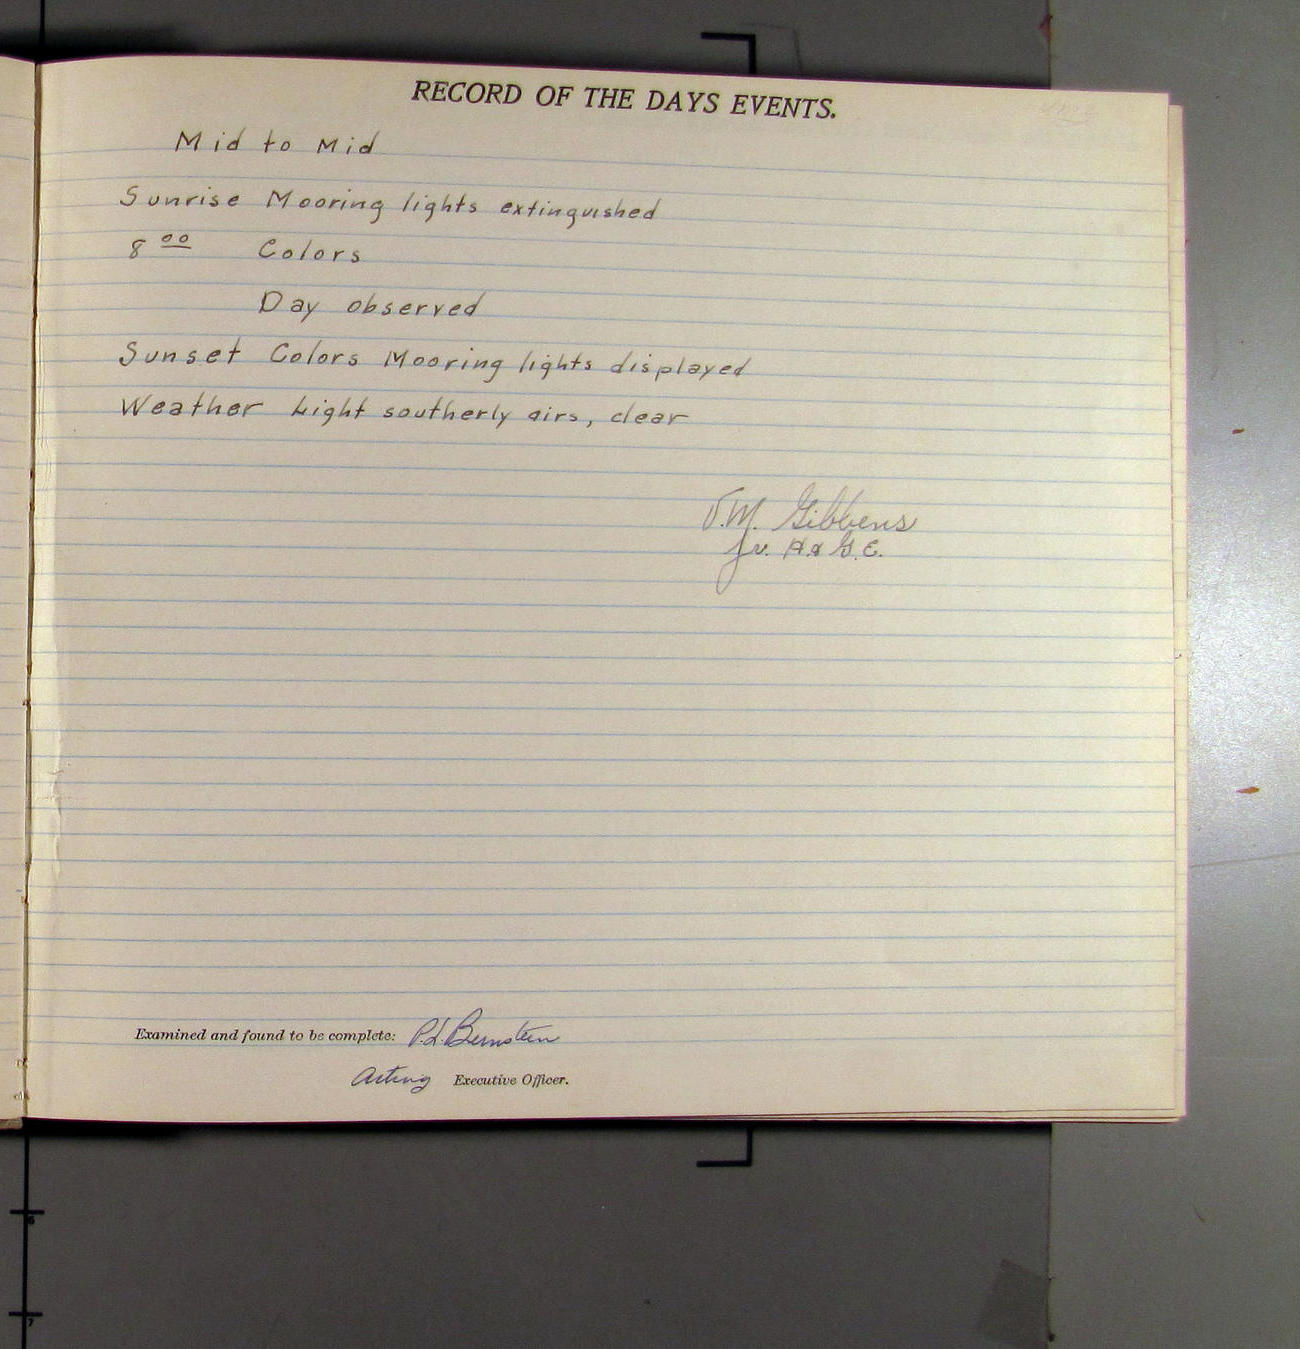 RECORD OF THE DAYS EVENTS.
Mid to Mid
Sunrise Mooring lights extinguished
8 00 Colors
Day observed
Sunset Colors Mooring lights displayed
Weather Light southerly airs, clear
V.M. Gibbens
Jr. H. & G. E.
Examined and found to be complete: P.L. Bernstein
Acting Executive Officer.
6
7